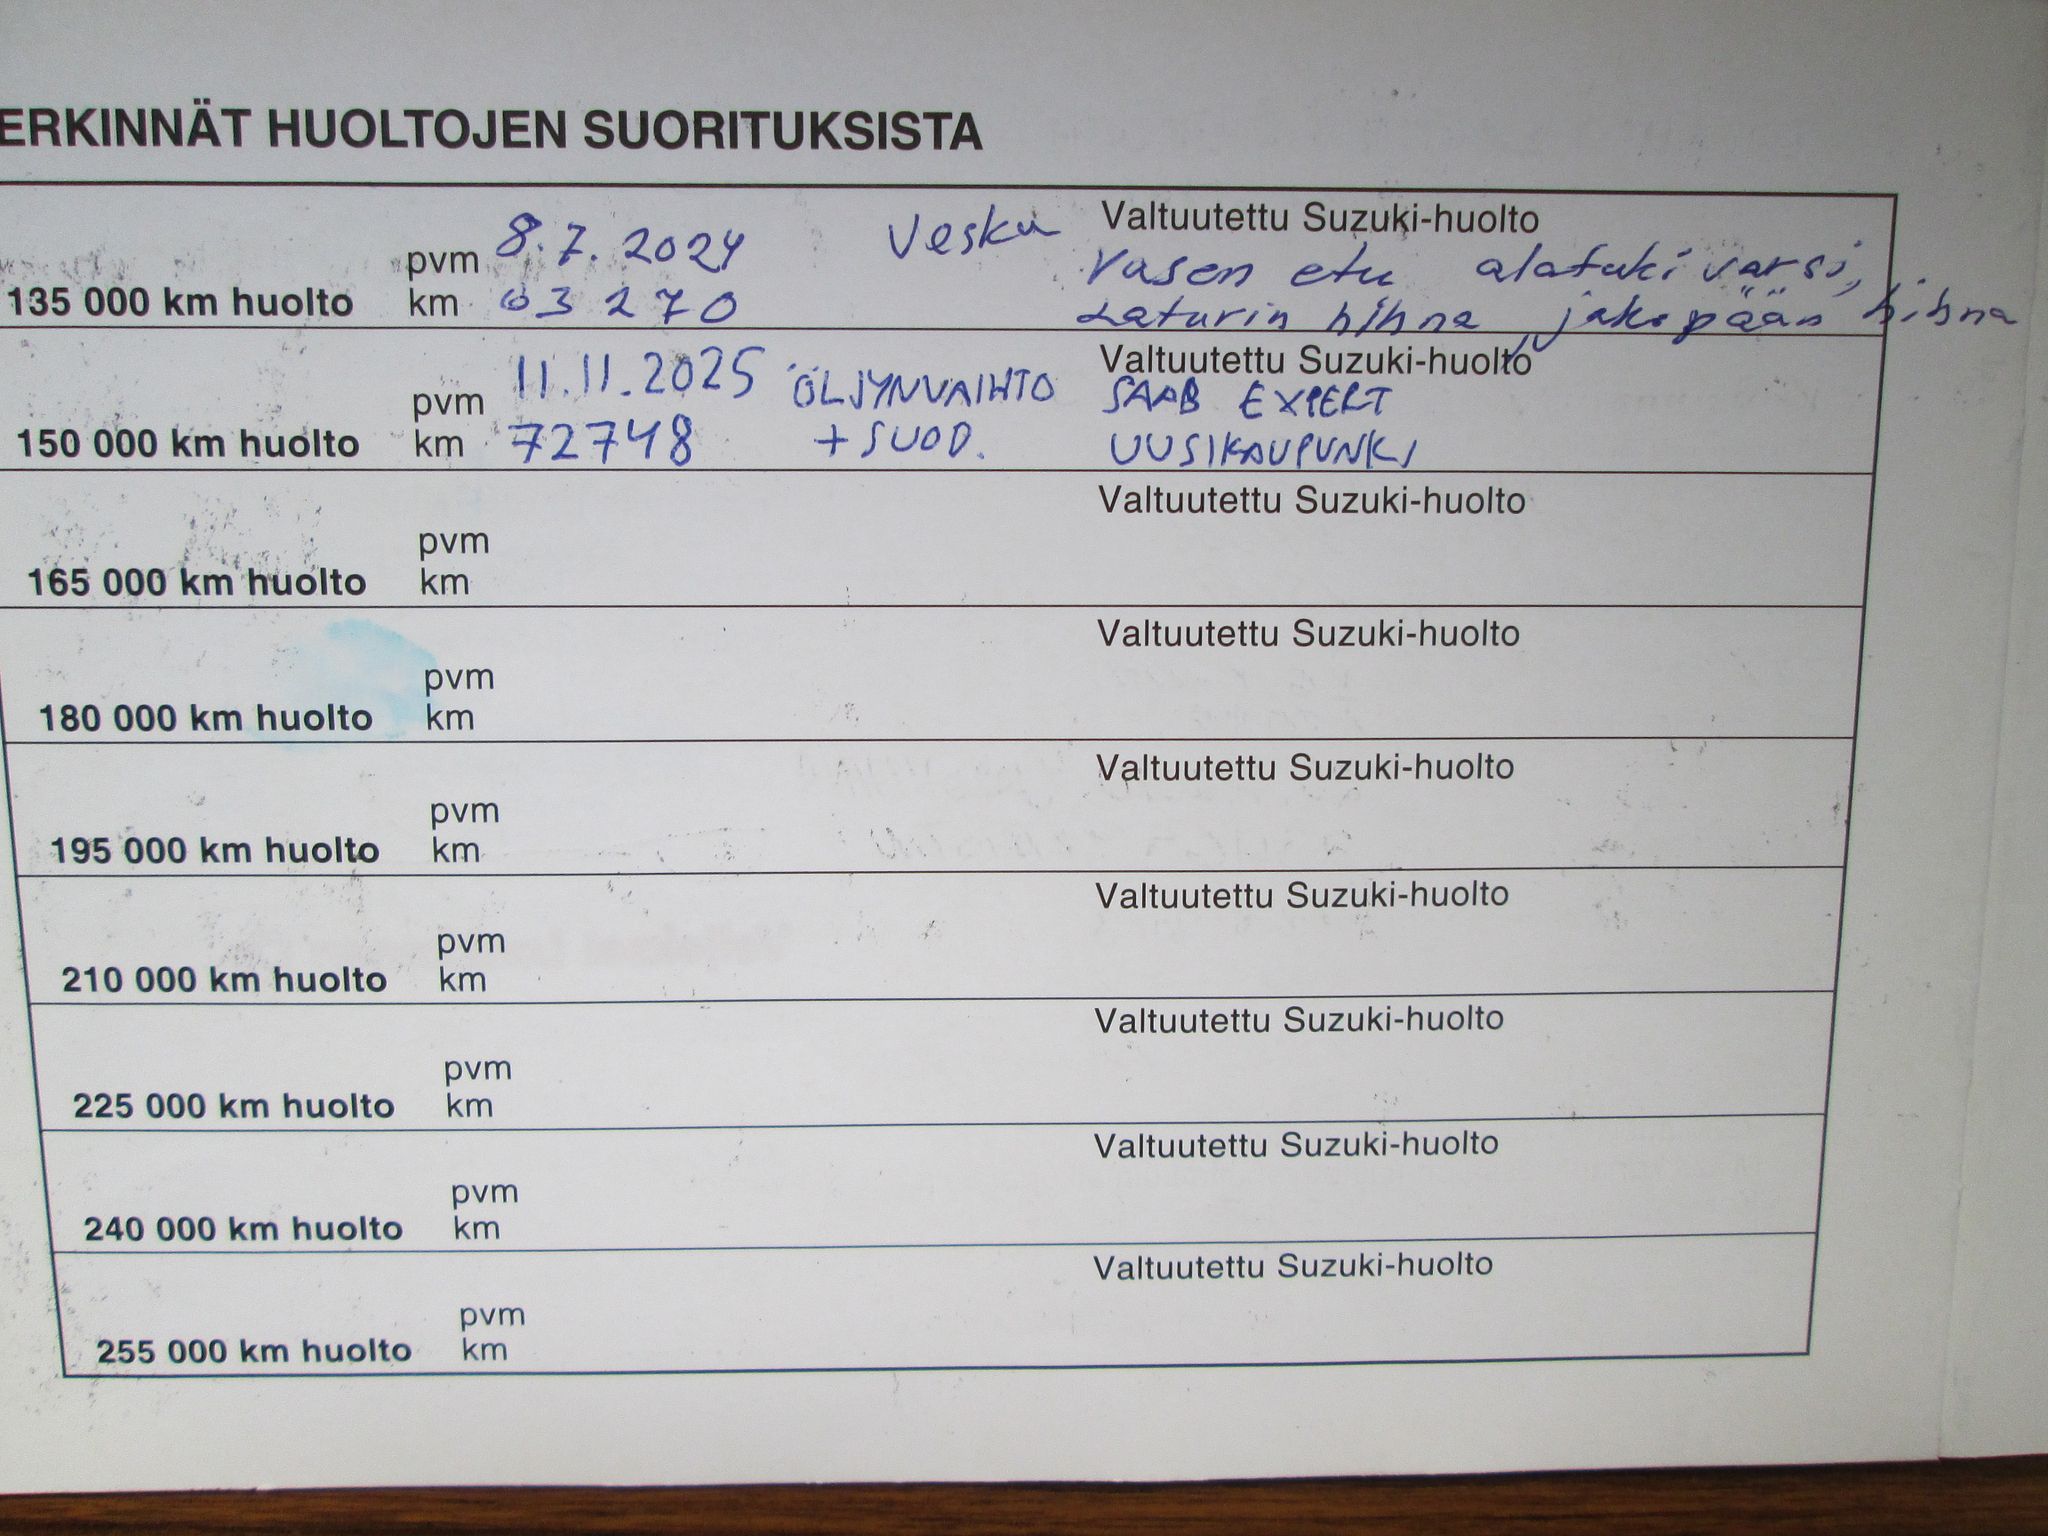 ERKINNÄT HUOLTOJEN SUORITUKSISTA
Valtuutettu Suzuki-huolto
pvm 8.7.2024 Vesku Vasen etu alatukivarsi,
135 000 km huolto km 63270 Laturin hihna, jakopään hihna
Valtuutettu Suzuki-huolto
pvm 11.11.2025 ÖLJYNVAIHTO SAAB EXPERT
150 000 km huolto km 72748 + SUOD. UUSIKAUPUNKI
Valtuutettu Suzuki-huolto
pvm
165 000 km huolto km
Valtuutettu Suzuki-huolto
pvm
180 000 km huolto km
Valtuutettu Suzuki-huolto
pvm
195 000 km huolto km
Valtuutettu Suzuki-huolto
pvm
210 000 km huolto km
Valtuutettu Suzuki-huolto
pvm
225 000 km huolto km
Valtuutettu Suzuki-huolto
pvm
240 000 km huolto km
Valtuutettu Suzuki-huolto
pvm
255 000 km huolto km